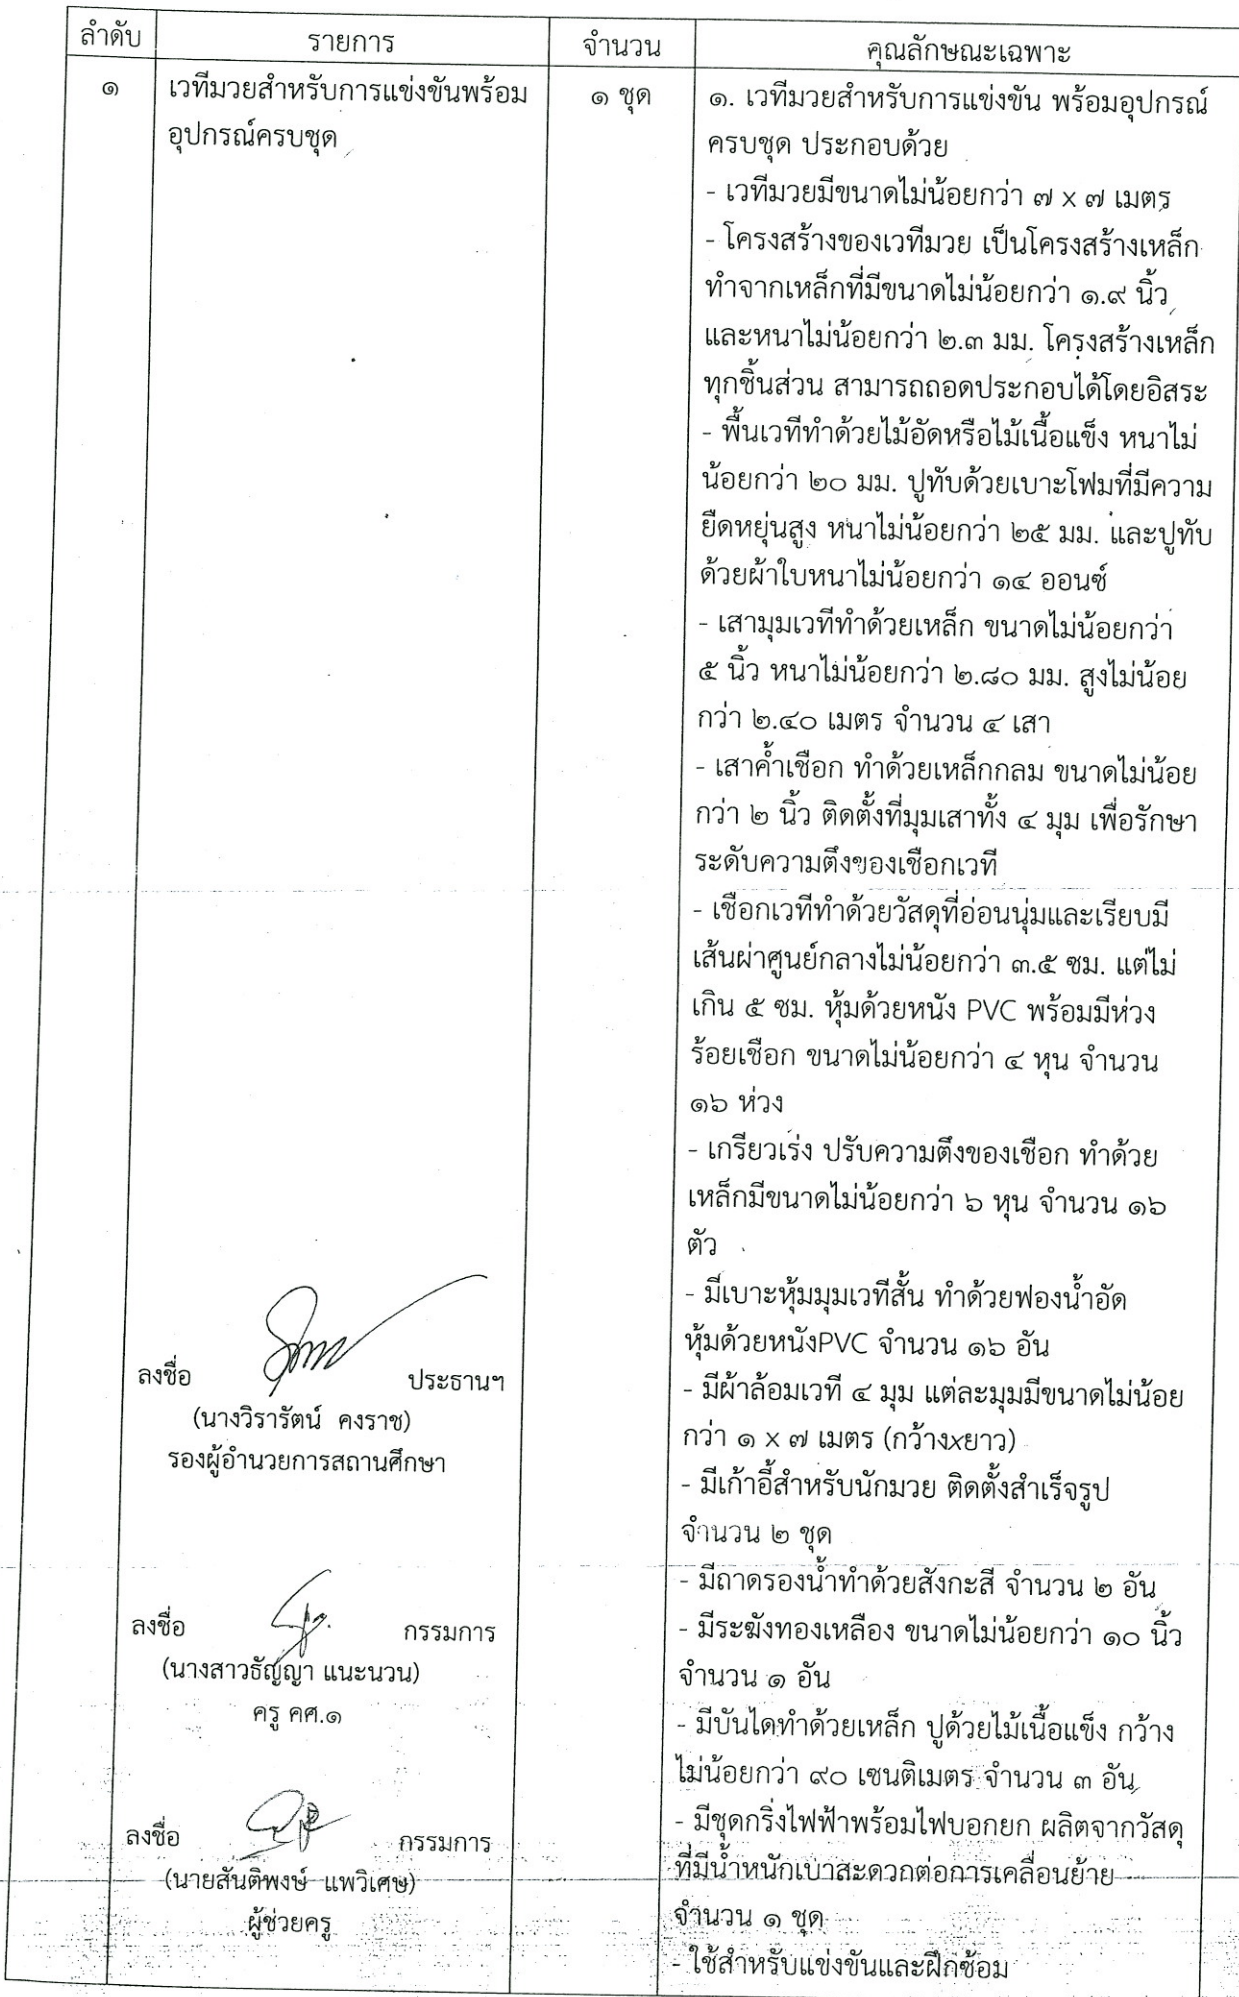 ลำดับ รายการ จำนวน คุณลักษณะเฉพาะ
๑ เวทีมวยสำหรับการแข่งขันพร้อม ๑ ชุด ๑. เวทีมวยสำหรับการแข่งขัน พร้อมอุปกรณ์
อุปกรณ์ครบชุด ครบชุด ประกอบด้วย
- เวทีมวยมีขนาดไม่น้อยกว่า ๗ x ๗ เมตร
- โครงสร้างของเวทีมวย เป็นโครงสร้างเหล็ก
ทำจากเหล็กที่มีขนาดไม่น้อยกว่า ๑.๙ นิ้ว
และหนาไม่น้อยกว่า ๒.๓ มม. โครงสร้างเหล็ก
ทุกชิ้นส่วน สามารถถอดประกอบได้โดยอิสระ
- พื้นเวทีทำด้วยไม้อัดหรือไม้เนื้อแข็ง หนาไม่
น้อยกว่า ๒๐ มม. ปูทับด้วยเบาะโฟมที่มีความ
ยืดหยุ่นสูง หนาไม่น้อยกว่า ๒๕ มม. และปูทับ
ด้วยผ้าใบหนาไม่น้อยกว่า ๑๔ ออนซ์
- เสามุมเวทีทำด้วยเหล็ก ขนาดไม่น้อยกว่า
๕ นิ้ว หนาไม่น้อยกว่า ๒.๘๐ มม. สูงไม่น้อย
กว่า ๒.๔๐ เมตร จำนวน ๔ เสา
- เสาค้ำเชือก ทำด้วยเหล็กกลม ขนาดไม่น้อย
กว่า ๒ นิ้ว ติดตั้งที่มุมเสาทั้ง ๔ มุม เพื่อรักษา
ระดับความตึงของเชือกเวที
- เชือกเวทีทำด้วยวัสดุที่อ่อนนุ่มและเรียบมี
เส้นผ่าศูนย์กลางไม่น้อยกว่า ๓.๕ ซม. แต่ไม่
เกิน ๕ ซม. หุ้มด้วยหนัง PVC พร้อมมีห่วง
ร้อยเชือก ขนาดไม่น้อยกว่า ๔ หุน จำนวน
๑๖ ห่วง
- เกรียวเร่ง ปรับความตึงของเชือก ทำด้วย
เหล็กมีขนาดไม่น้อยกว่า ๖ หุน จำนวน ๑๖
ตัว
- มีเบาะหุ้มมุมเวทีสั้น ทำด้วยฟองน้ำอัด
หุ้มด้วยหนังPVC จำนวน ๑๖ อัน
- มีผ้าล้อมเวที ๔ มุม แต่ละมุมมีขนาดไม่น้อย
กว่า ๑ x ๗ เมตร (กว้างxยาว)
- มีเก้าอี้สำหรับนักมวย ติดตั้งสำเร็จรูป
จำนวน ๒ ชุด
- มีถาดรองน้ำทำด้วยสังกะสี จำนวน ๒ อัน
- มีระฆังทองเหลือง ขนาดไม่น้อยกว่า ๑๐ นิ้ว
จำนวน ๑ อัน
- มีบันไดทำด้วยเหล็ก ปูด้วยไม้เนื้อแข็ง กว้าง
ไม่น้อยกว่า ๙๐ เซนติเมตร จำนวน ๓ อัน
- มีชุดกริ่งไฟฟ้าพร้อมไฟบอกยก ผลิตจากวัสดุ
ที่มีน้ำหนักเบาสะดวกต่อการเคลื่อนย้าย
จำนวน ๑ ชุด
- ใช้สำหรับแข่งขันและฝึกซ้อม
ลงชื่อ ประธานฯ
(นางวิรารัตน์ คงราช)
รองผู้อำนวยการสถานศึกษา
ลงชื่อ กรรมการ
(นางสาวธัญญา แนะนวน)
ครู คศ.๑
ลงชื่อ กรรมการ
(นายสันติพงษ์ แพวิเศษ)
ผู้ช่วยครู